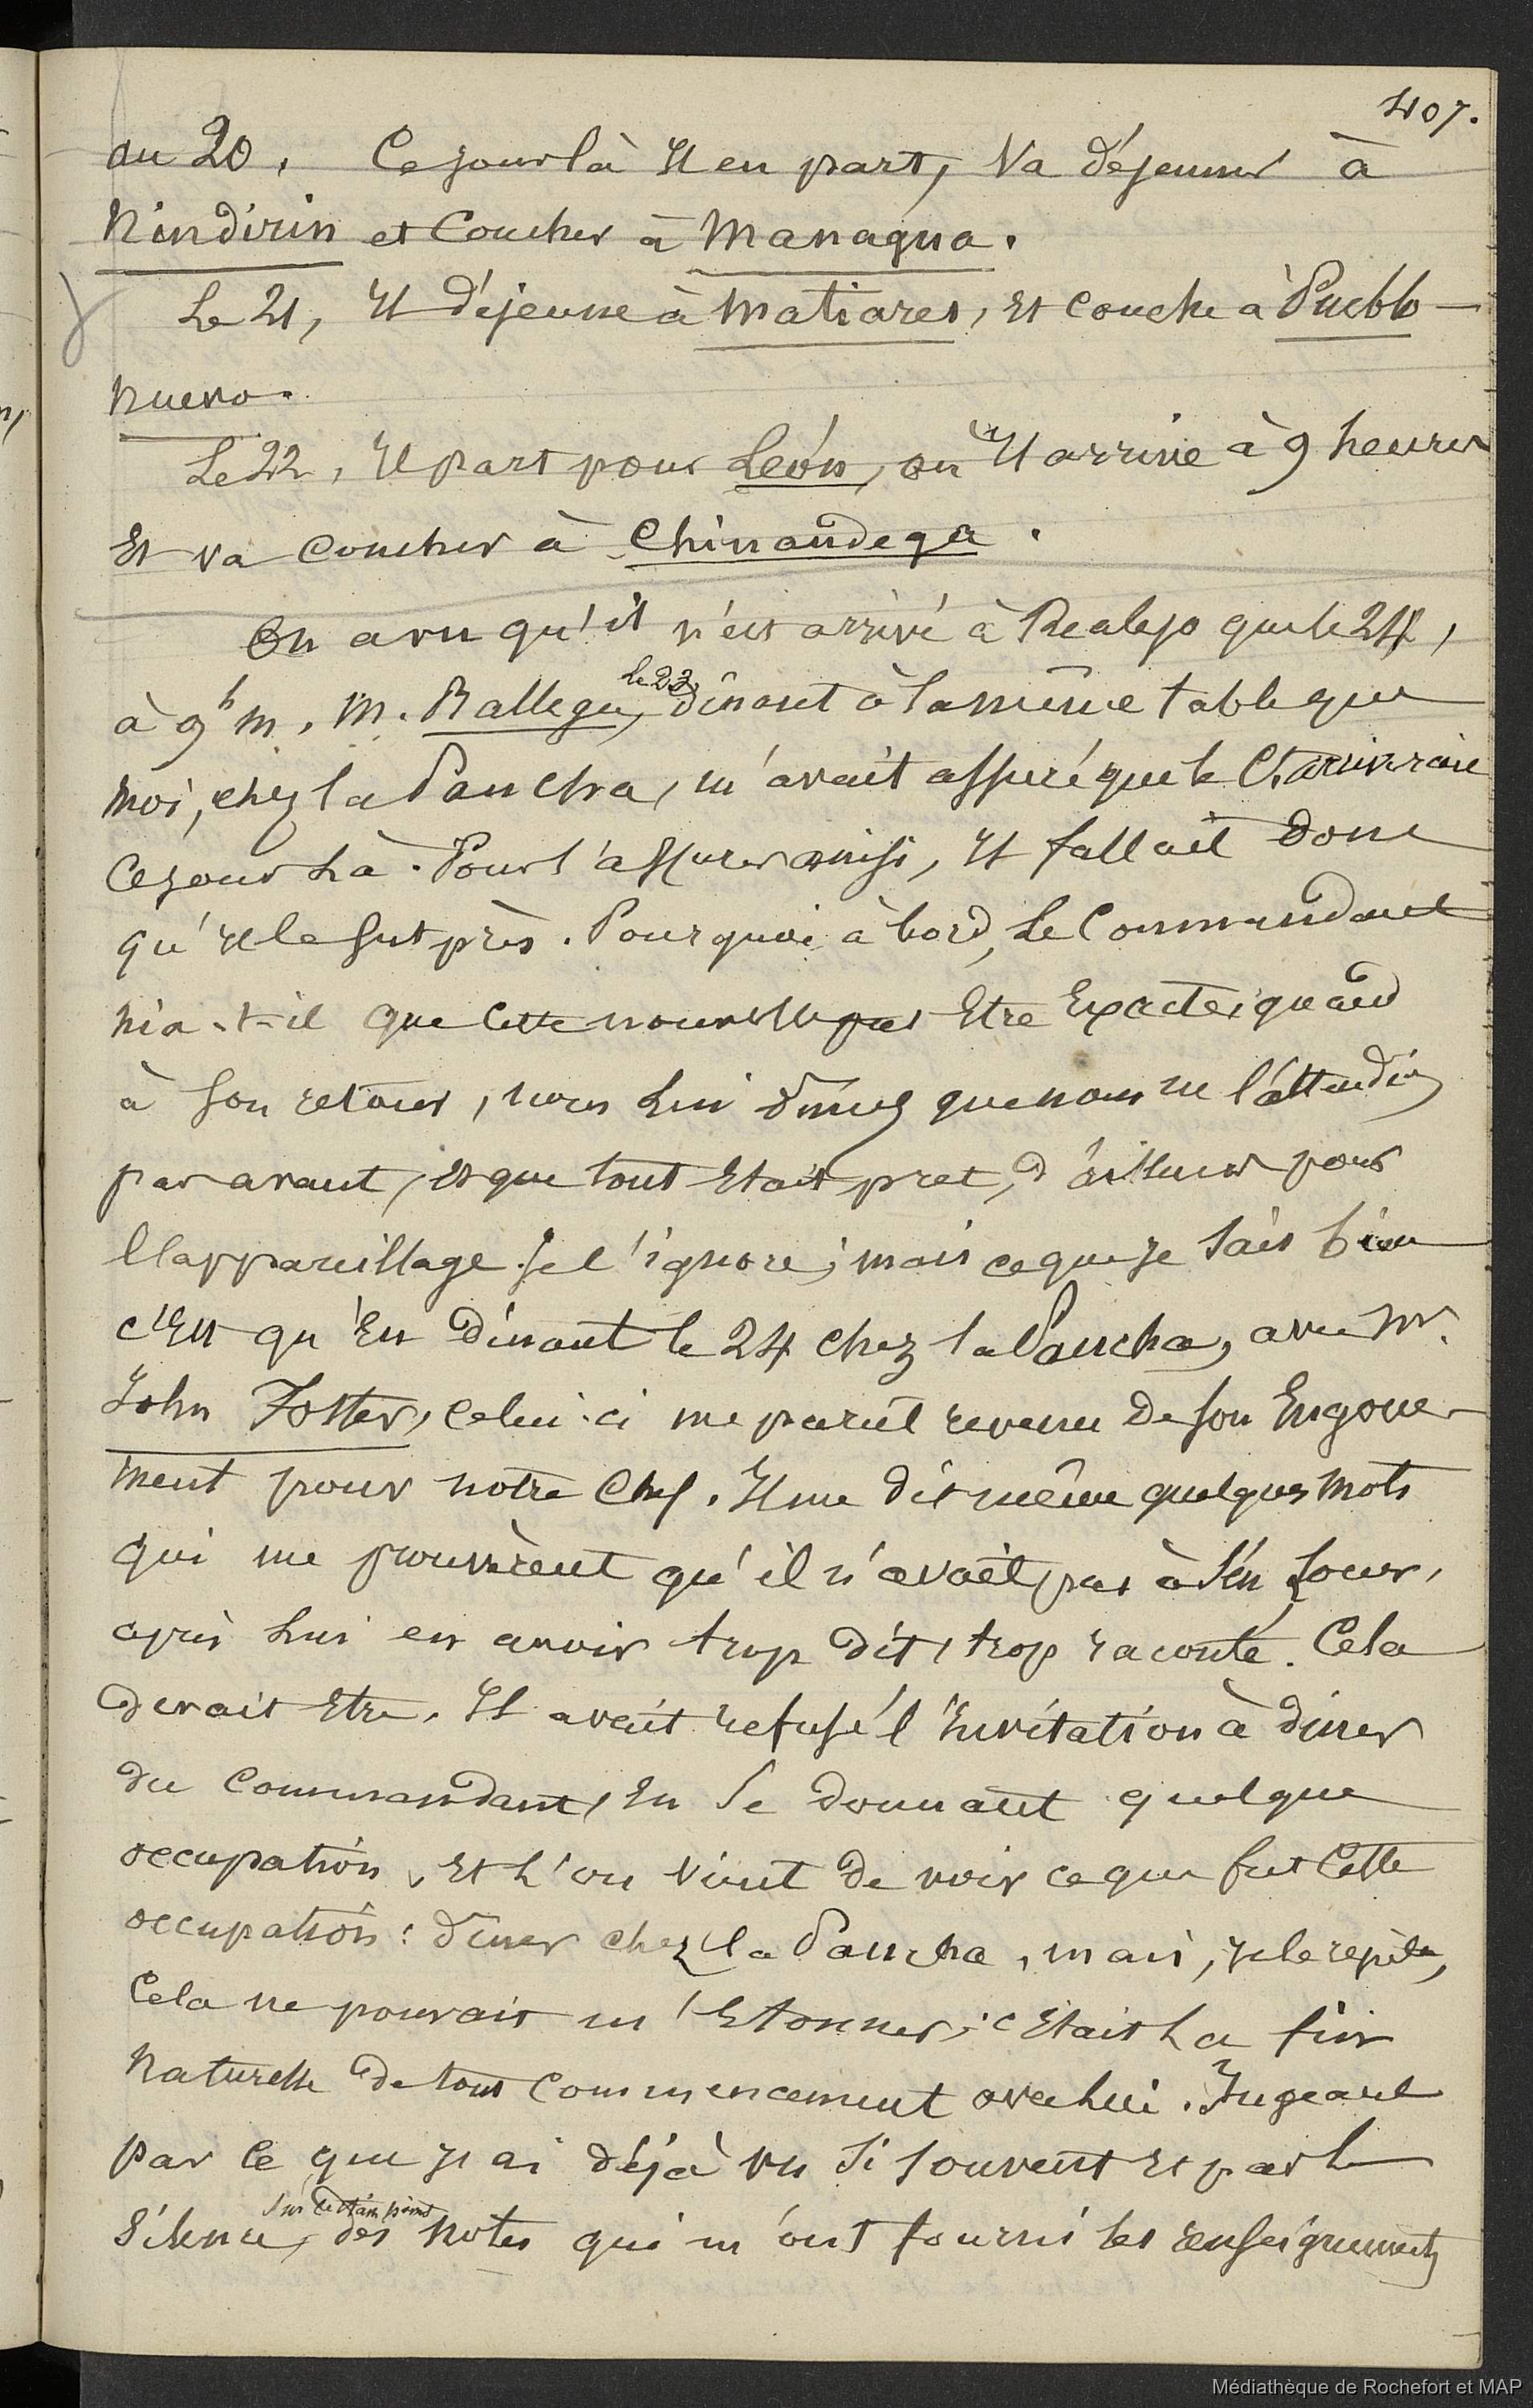 407.
au 20. Ce jour là Il en part, Va déjeuner à
Nindirin et Coucher à Managua.
Le 21, Il déjeune à Matiares, Et Couche à Pueblo-
Nuevo.
Le 22, Il part pour León, où Il arrive à 9 heures
Et va Coucher à Chinandega.
On a vu qu'il n'est arrivé à Realejo que le 24,
à 9h m. M. Rallegu, le 23, dinant à la même table que
moi, chez la Pancha, m'avait assuré que le Ct arriverait
Ce jour Là. Pour l'assurer ainsi, Il fallait donc
qu'Il le sut près. Pourquoi à bord, Le Commandant
nia-t-il que Cette nouvelle put Etre Exacte, quand
à son retour, nous Lui dimes que nous ne l'attendions
pas avant, Et que tout Etait pret, d'ailleurs pour
l'appareillage. Je l'ignore; mais ce que je sais bien
c'Est qu'En dinant le 24 chez la Pancha, avec Mr.
John Foster, Celui-ci me parut revenu de son Engoue-
ment pour notre Chef. Il me dit même quelques mots
qui me prouvèrent qu'il n'avait pas à s'En Louer,
après Lui en avoir trop dit, trop raconté. Cela
devait Etre. Il avait refusé l'Invitation à diner
du Commandant, En se donnant quelque
occupation, Et L'on vient de voir ce que fut Cette
occupation: diner chez la Pancha, mais, je le repète,
Cela ne pouvait m'Etonner; c'Etait La fin
Naturelle de tout Commencement avec Lui. Jugeant
par Ce que j'ai déjà vu si souvent Et par le
Silence, sur certain point des Notes qui m'ont fourni les renseignements
Médiathèque de Rochefort et MAP